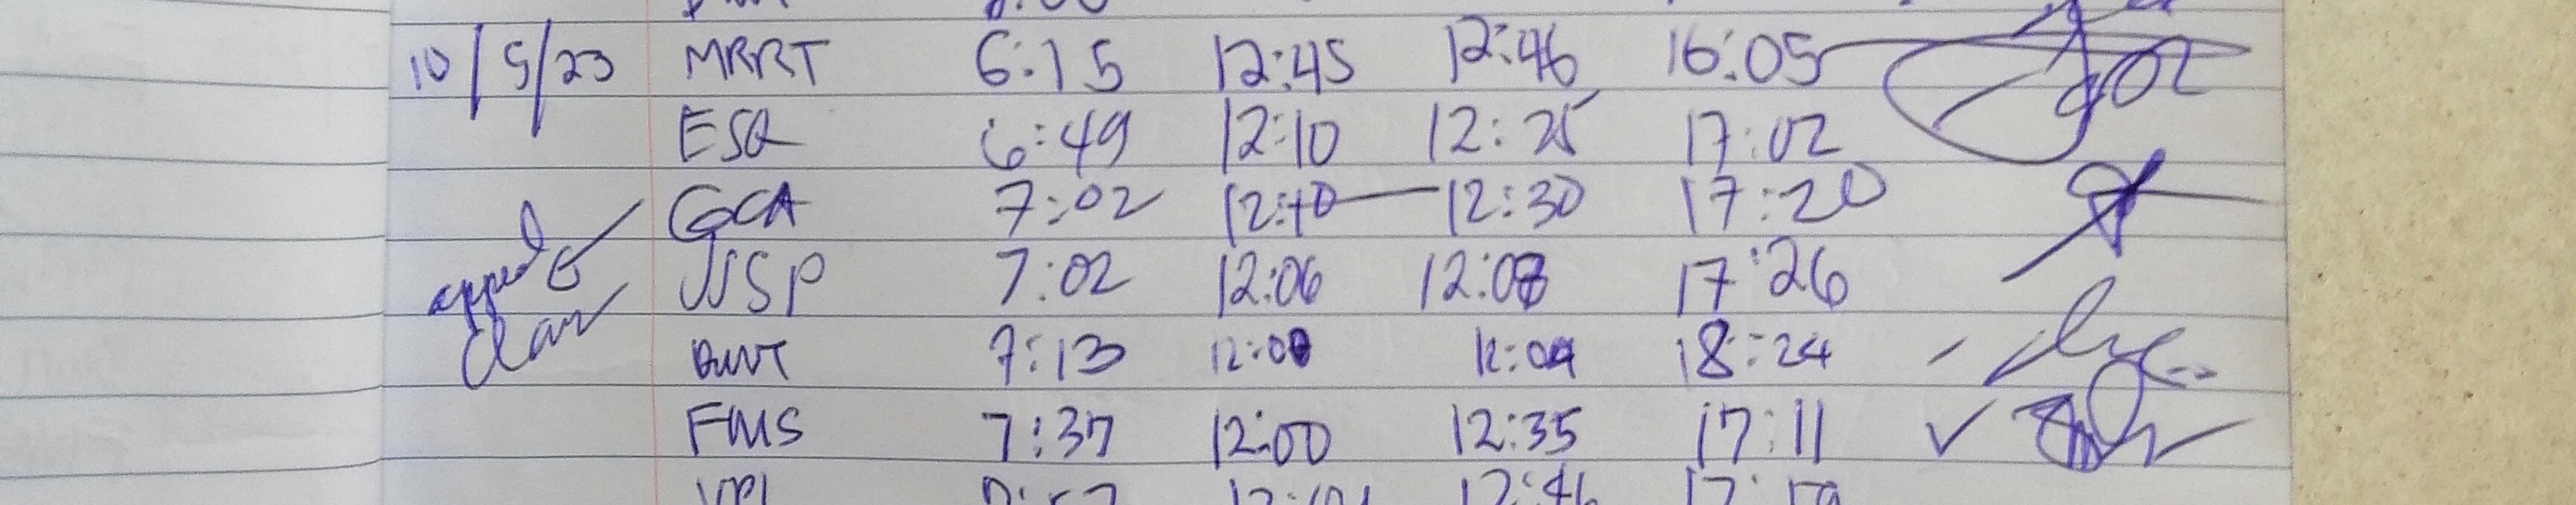 10/5/23 MRRT 6:15 12:45 12:46 16:05
ESQ 6:49 12:10 12:25 17:02
GCA 7:02 12:10 12:30 17:20
JJSP 7:02 12:06 12:08 17:26
7:13 12:00 12:09 18:24
FMS 7:37 12:00 12:35 17:11
12:46